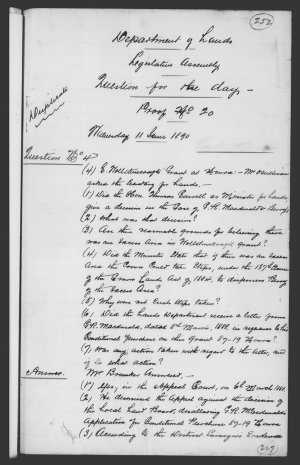 252
Department of Lands
Legislative Assembly
Question for the day -
Proof No 20
Duplicate
Wednesday 11 June 1890
Question No 4
(4) E. Grant at Mr
asked the Secretary for Lands, -
(1) Did the Hon Thomas Garrett as Minister for Lands
give a decision in the Case of G. R. Macdonald v
(2) What was that decision?
(3) Are there reasonable grounds for believing there
was an excess Area in Grant?
(4) Did the Minister state that if there was an excess
Area the Crown must take steps, under the
of the Crown Lands Act of 1884, to dispossess
of the excess Area?
(5) Why were not such steps taken?
(6) Did the Lands Department receive a letter from
G. R. Macdonald, dated March, 1888, in reference to his
Conditional Purchase on this Grant 87-19
(7) Was any action taken with regard to the letter, and
if so what action?
Answer.
Mr Brunker Answered, -
(1) Yes, in the Appeal Court, on 6th March 1888.
(2) He dismissed the Appeal against the decision of
the Local Land Board, disallowing G. R. Macdonald's
Application for Conditional Purchase 87-19
(3) According to the District Surveyor's Evidence